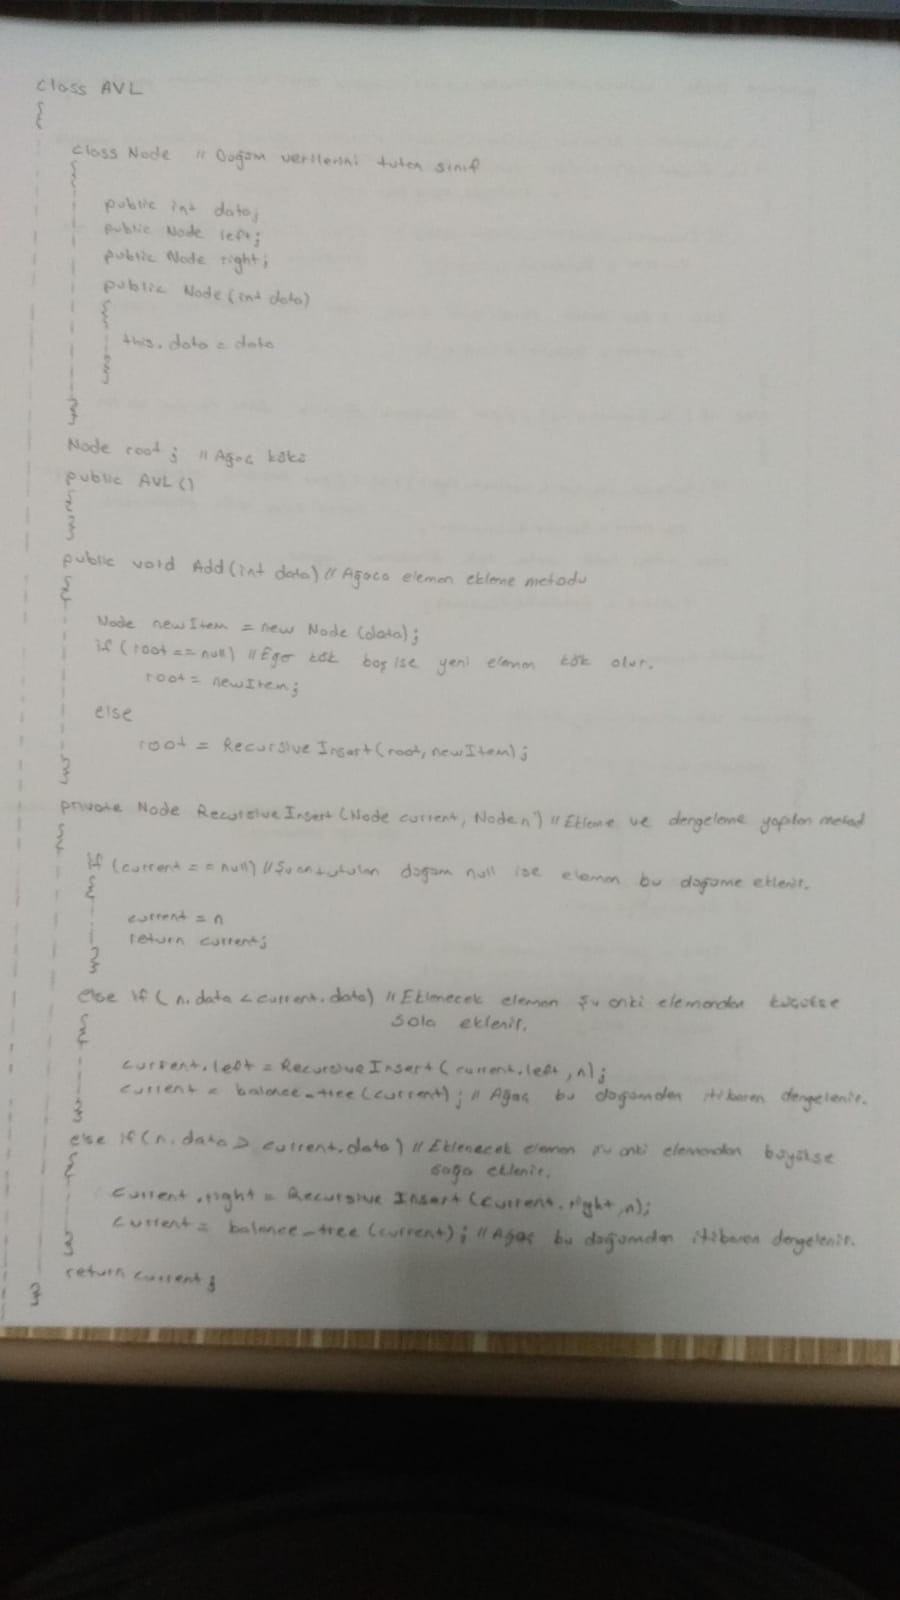 class AVL
{
class Node // Düğüm verilerini tutan sınıf
{
public int data;
public Node left;
public Node right;
public Node(int data)
{
this.data = data
}
}
Node root; // Ağaç kökü
public AVL()
{
}
public void Add(int data) // Ağaca eleman ekleme metodu
{
Node newItem = new Node(data);
if (root == null) // Eğer kök boş ise yeni eleman kök olur.
root = newItem;
else
root = RecursiveInsert(root, newItem);
}
private Node RecursiveInsert(Node current, Node n) // Ekleme ve dengeleme yapılan metod
{
if (current == null) // Şu an tutulan düğüm null ise eleman bu düğüme eklenir.
{
current = n
return current;
}
else if (n.data < current.data) // Eklenecek eleman şu anki elemandan küçükse
sola eklenir.
{
current.left = RecursiveInsert(current.left, n);
current = balance_tree(current); // Ağaç bu düğümden itibaren dengelenir.
}
else if (n.data > current.data) // Eklenecek eleman şu anki elemandan büyükse
sağa eklenir.
{
current.right = RecursiveInsert(current.right, n);
current = balance_tree(current); // Ağaç bu düğümden itibaren dengelenir.
}
return current;
}